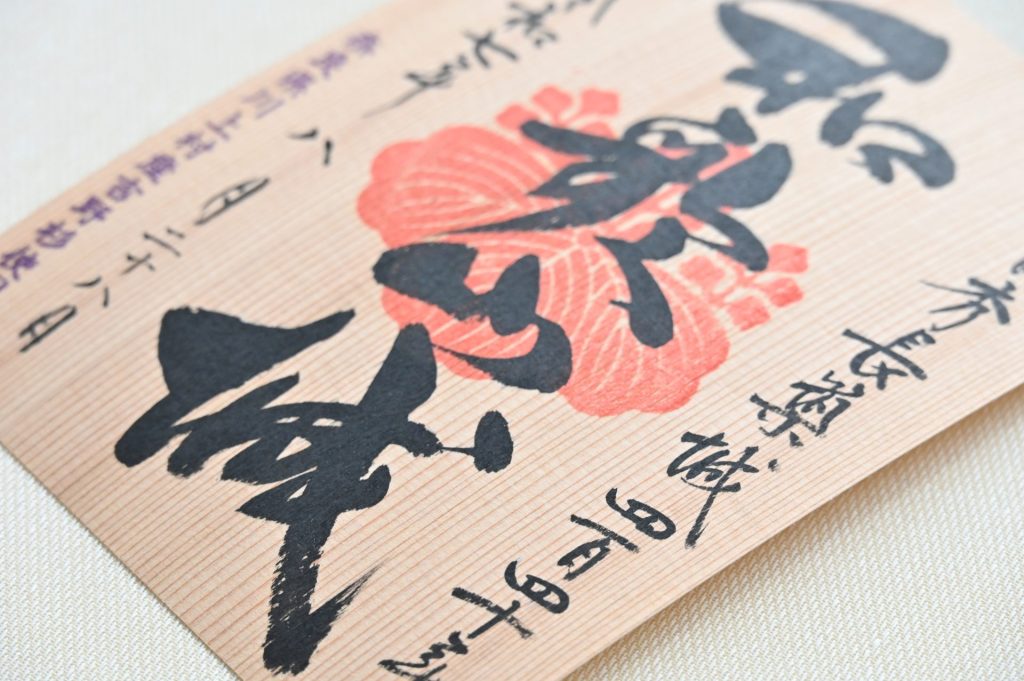 秀長築城四百四十年
和郡山城
令和七年 八月二十八日
奈良県川上村産吉野杉使用